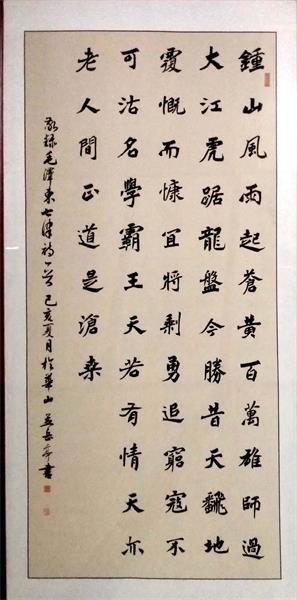 鍾山風雨起蒼黄百萬雄師過
大江虎踞龍盤今勝昔天飜地
覆慨而慷宜將剩勇追窮寇不
可沽名學霸王天若有情天亦
老人間正道是滄桒
敬録毛澤東七律詩一首己亥夏月於華山書